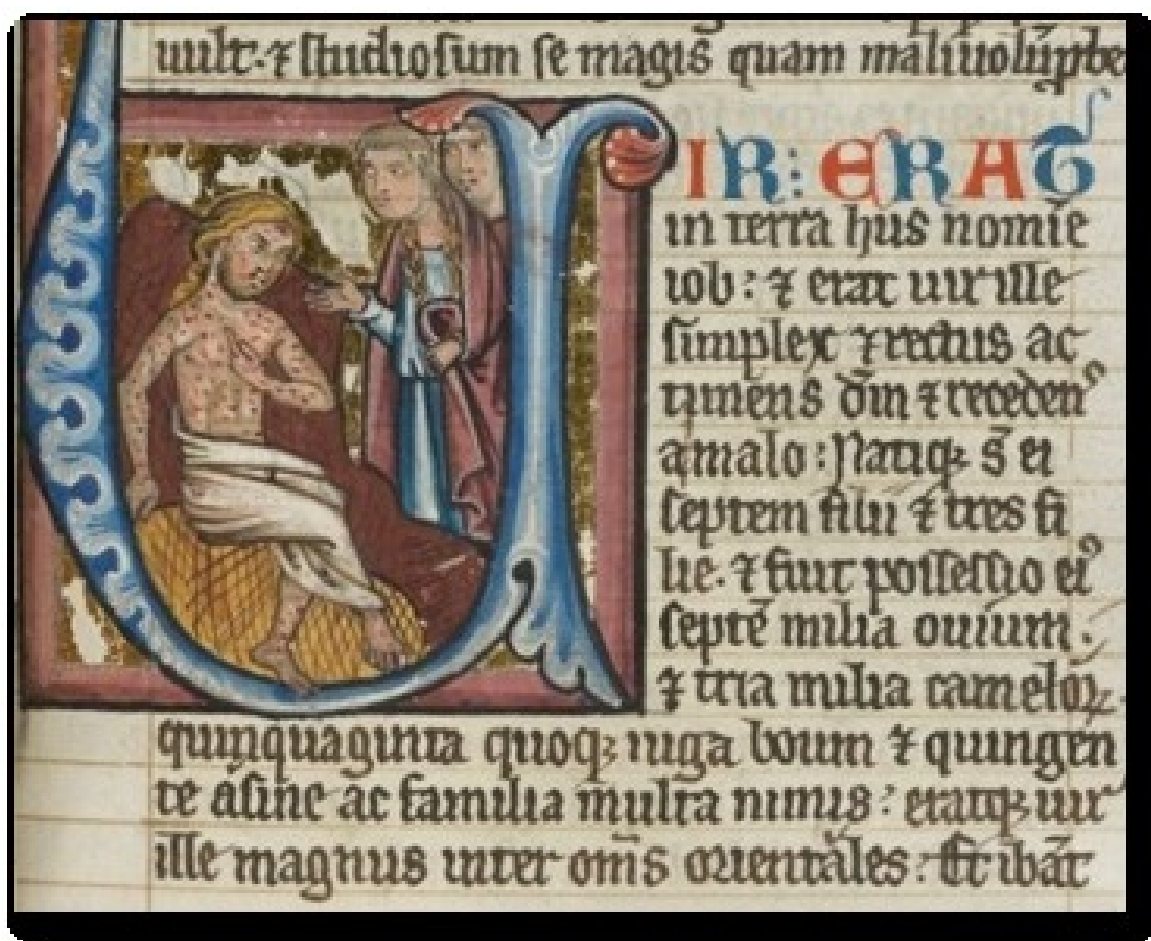 uult. ⁊ studiosum se magis quam maliuolū
UIR: ERAT
in terra hus nomīe
iob: ⁊ erat uir ille
simplex ⁊ rectus ac
timens dm̄ ⁊ receden⁹
a malo: Natiq; s̄ ei
septem filii ⁊ tres fi
lie. ⁊ fuit possessio ei⁹
septē milia ouium.
⁊ tria milia cameloꝝ.
quinquaginta quoq; iuga boum ⁊ quingen
te asine ac familia multa nimis: eratq; uir
ille magnus inter om̄s orientales: Et ibāt